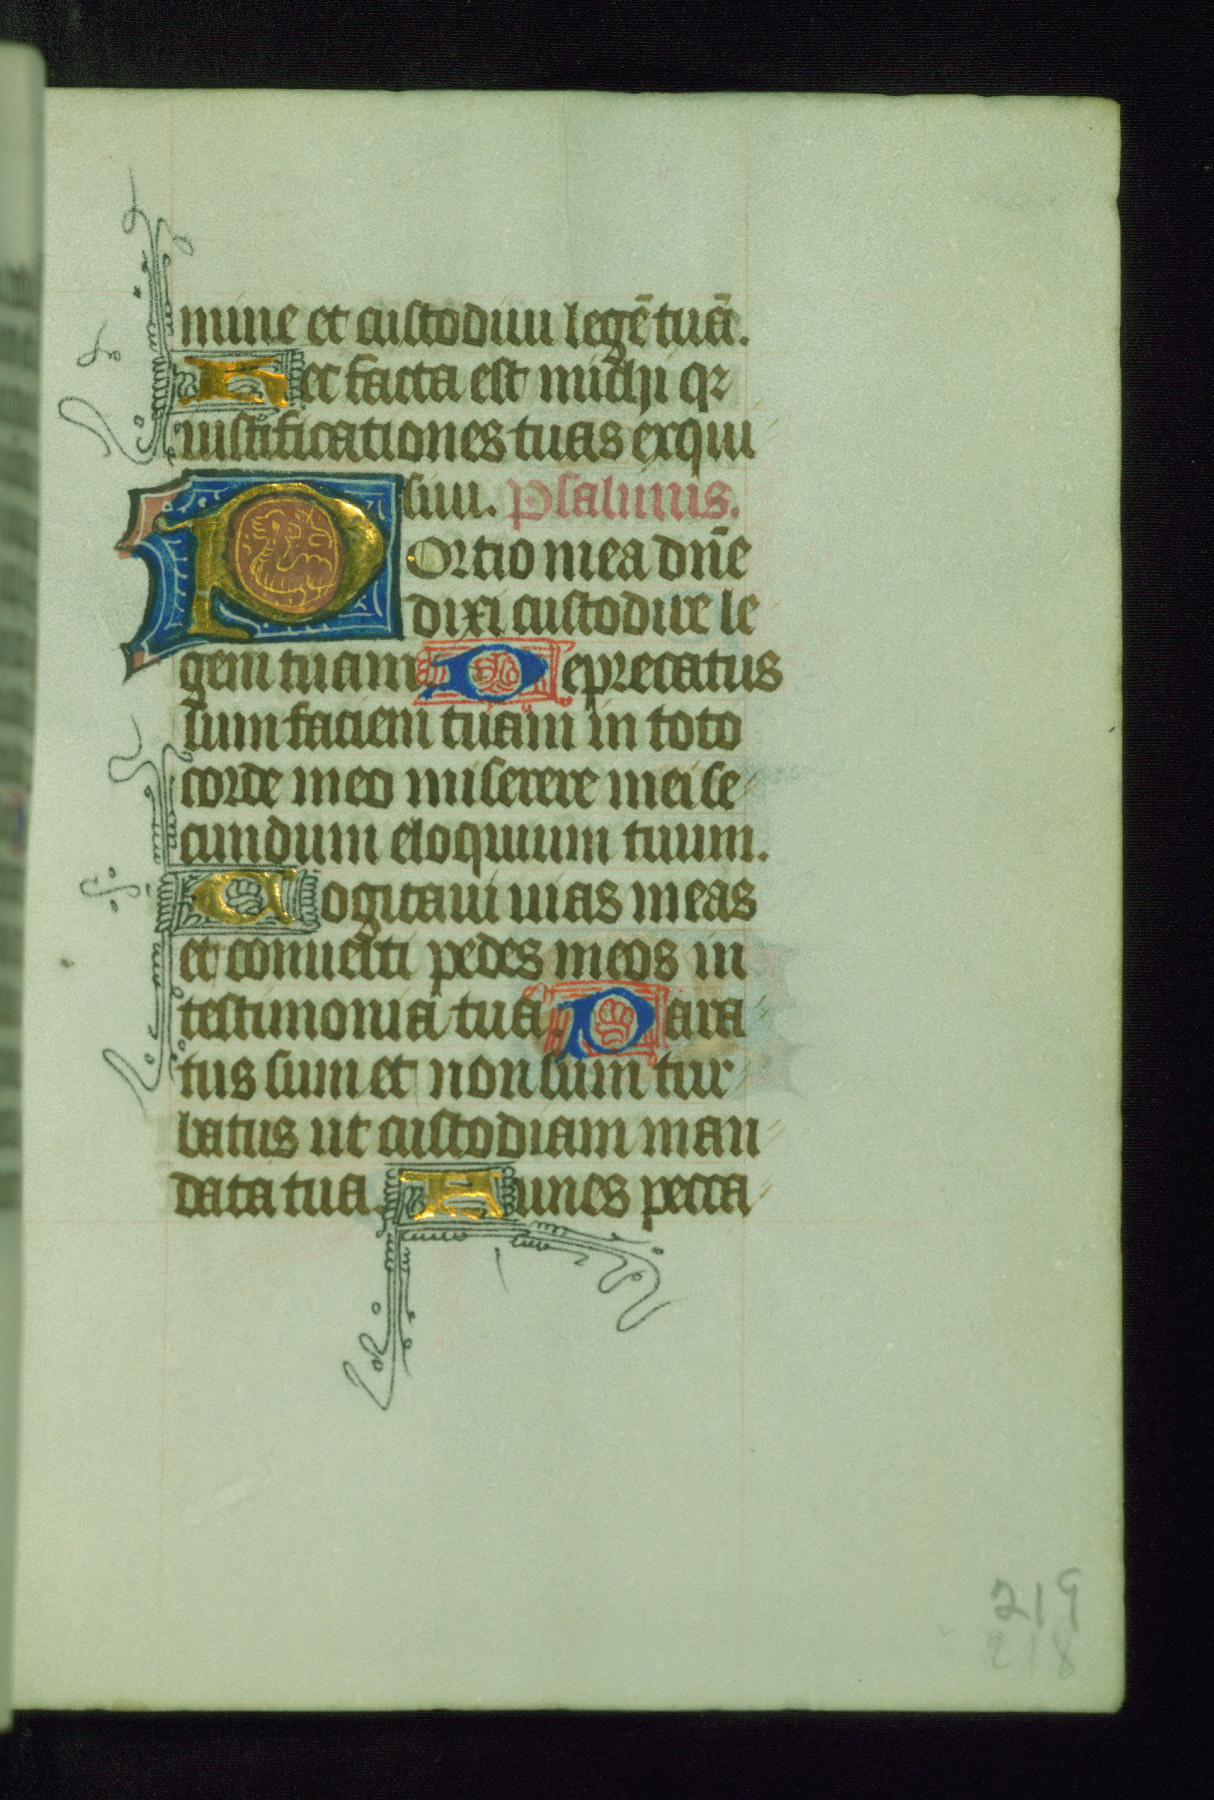 mine et custodiui legē tuā.
Hec facta est michi qr
iustificationes tuas exqui
siui. Psalmus.
Portio mea dn̄e
dixi custodire le
gem tuam Deprecatus
sum faciem tuam in toto
corde meo miserere mei se
cundum eloquium tuum.
Cogitaui uias meas
et conuerti pedes meos in
testimonia tua. Para
tus sum et non sum tur
batus ut custodiam man
data tua. Funes pecca
219
218